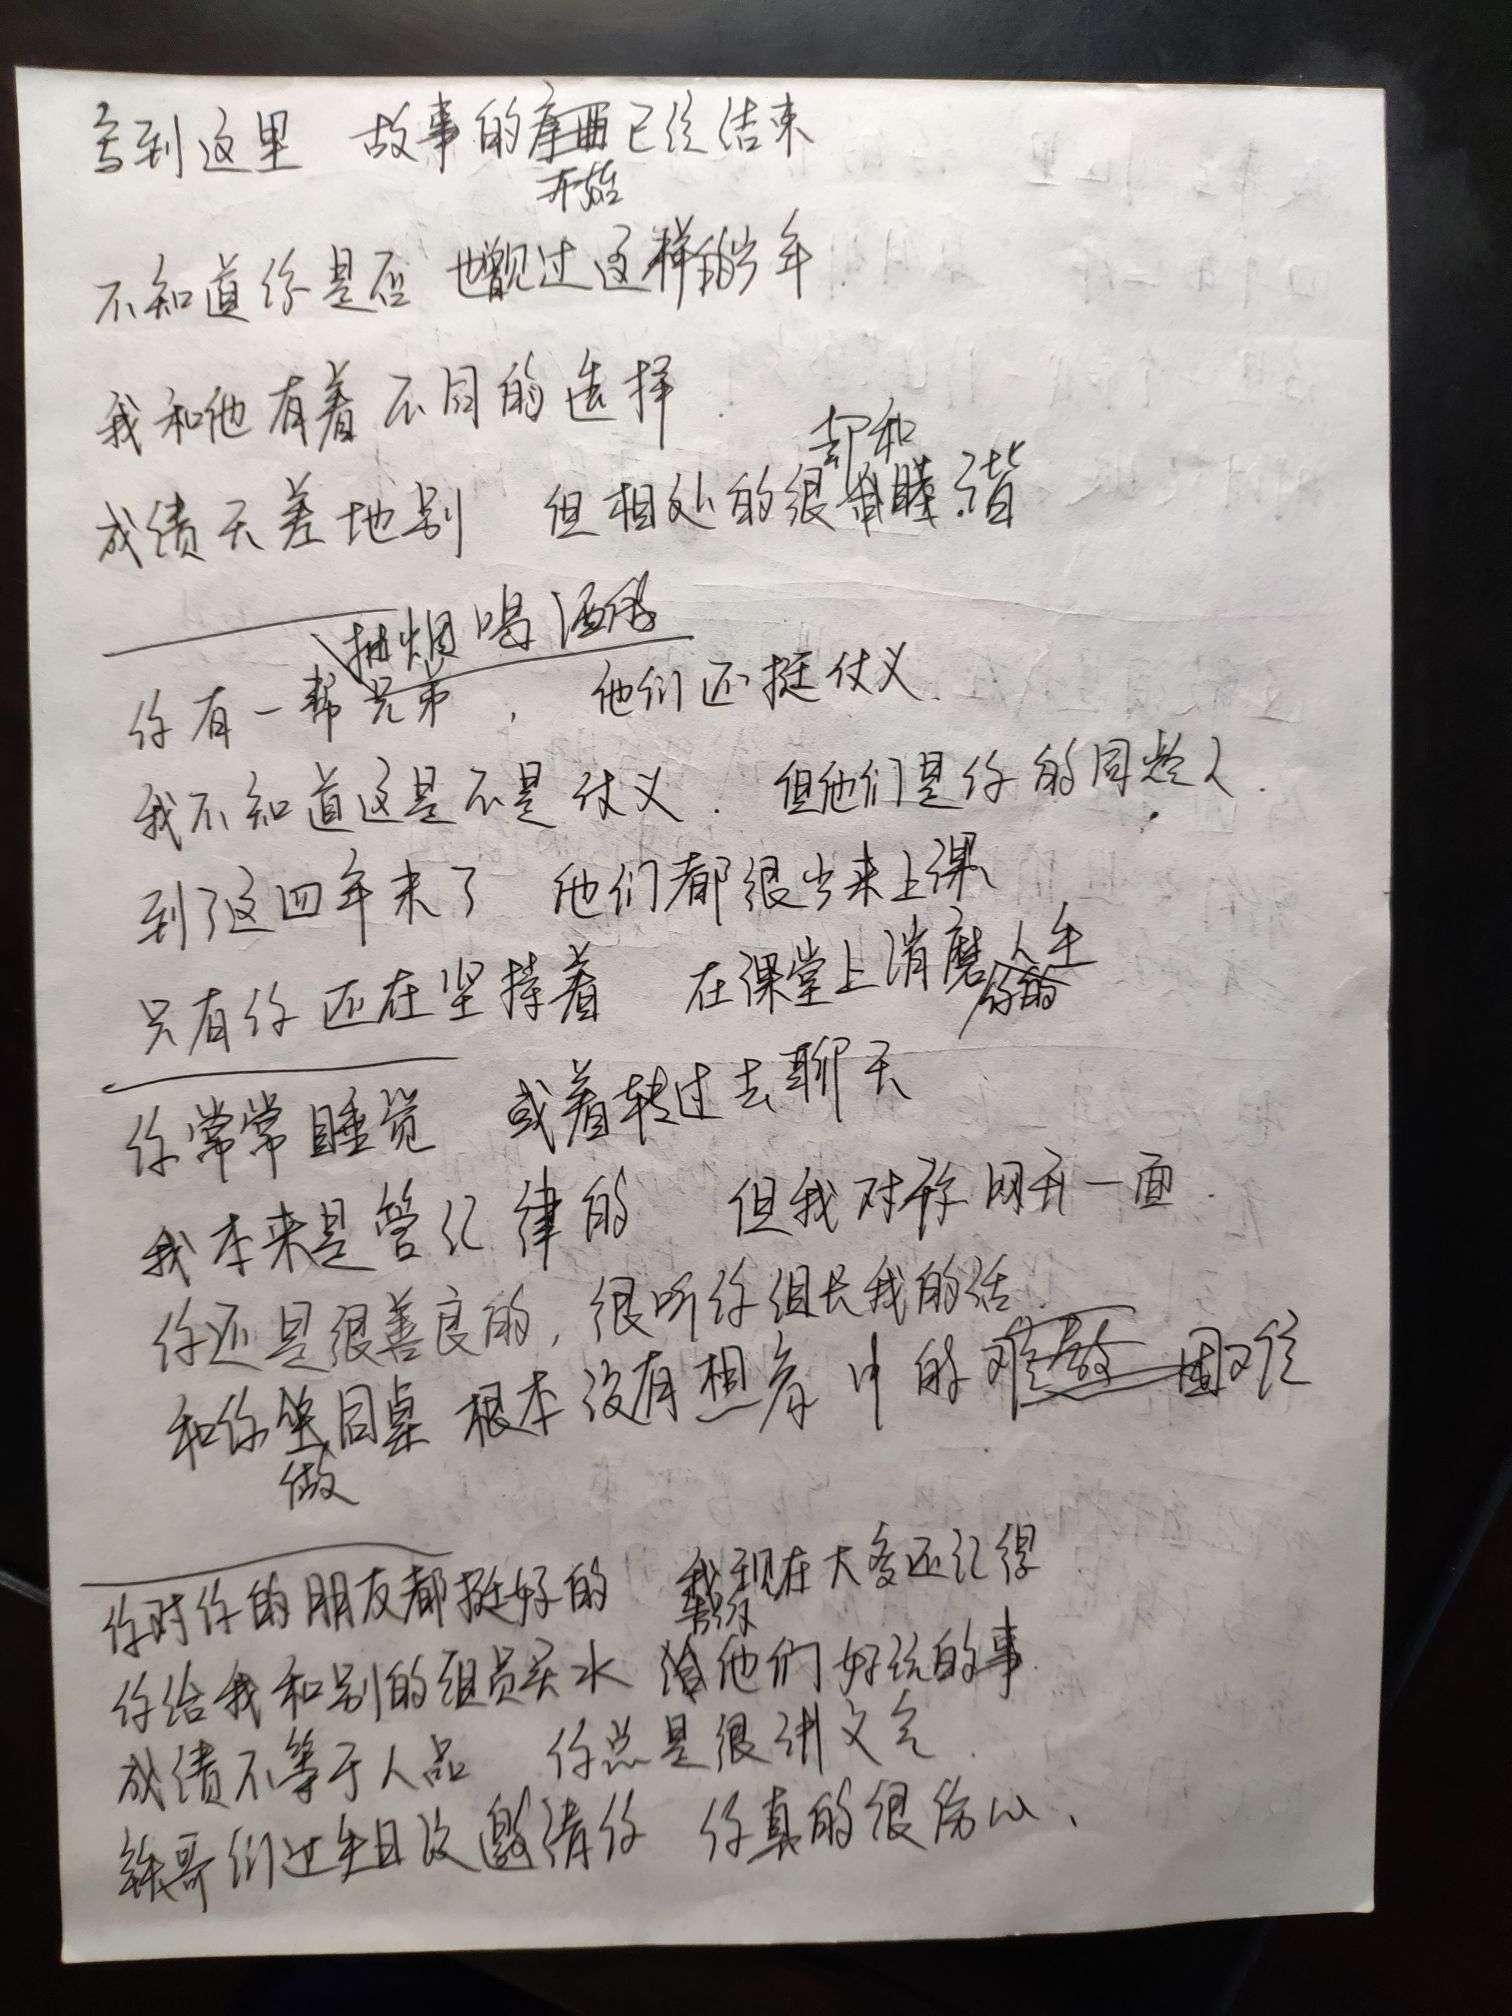 写到这里 故事的序曲已经结束
开始
不知道你是否 也曾见过这样的少年
我和他有着不同的选择
却和
成绩天差地别 但相处的很 谐
抽烟喝酒
你有一帮兄弟，他们还挺仗义
我不知道这是不是仗义 但他们是你的同龄人
到了这四年来了 他们都很少来上课
只有你还在坚持着 在课堂上消磨人生
你的
你常常睡觉 或着转过去聊天
我本来是管纪律的 但我对你网开一面
你还是很善良的，很听你组长我的话
和你坐同桌 根本没有想象中的难 困难
做
你对你的朋友都挺好的 我现在大多还记得
你给我和别的组员买水 给他们好玩的事
成绩不等于人品 你总是很讲义气
铁哥们过生日没邀请你 你真的很伤心、